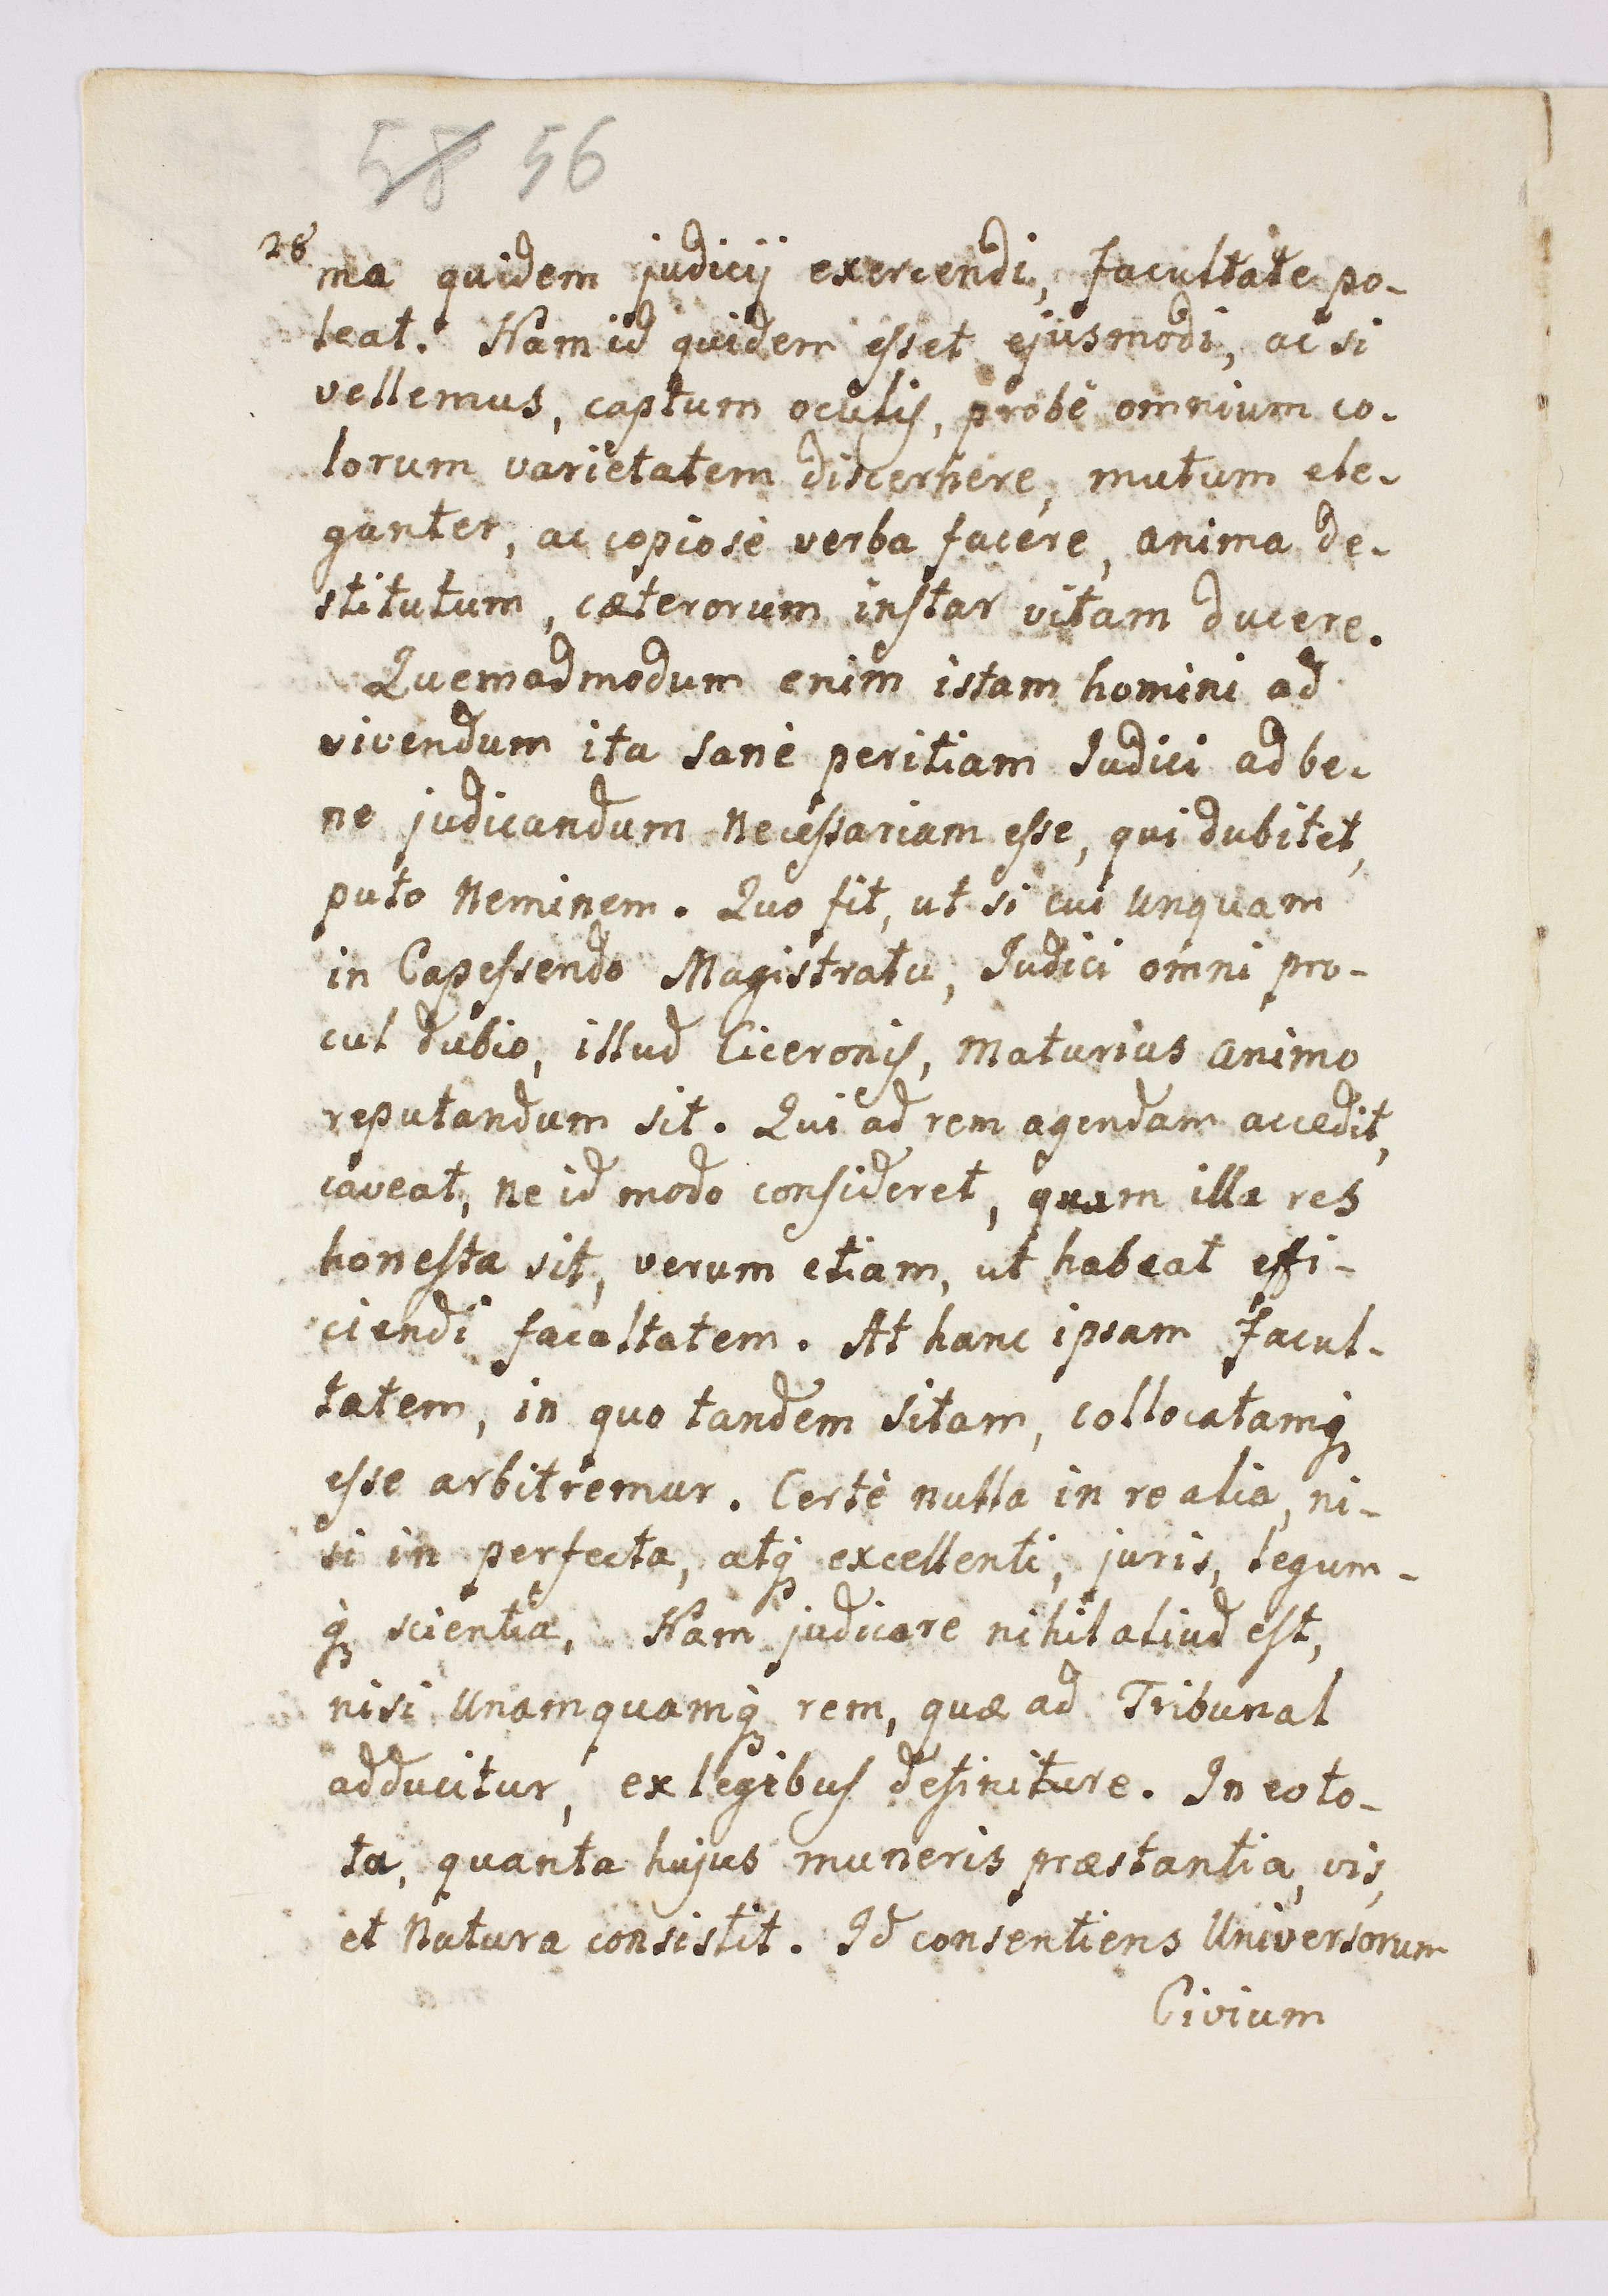 58 56
28
ma quidem judicij exercendi, facultate po-
leat. Nam id quidem esset ejusmodi, ac si
vellemus, captum oculis, probè omnium co-
lorum varietatem discernere, mutum ele-
ganter, ac copiosè verba facere, anima de-
stitutum, cæterorum instar vitam ducere.
Quemadmodum enim istam homini ad
vivendum ita sanè peritiam Judici ad be-
ne judicandum necessariam esse, qui dubitet,
puto Neminem. Quo fit, ut si cui unquam
in Capessendo Magistratu, Judici omni pro-
cul dubio, illud Ciceronis, maturius animo
reputandum sit. Qui ad rem agendam accedit,
caveat, ne id modo consideret, quam illa res
honesta sit, verum etiam, ut habeat effi-
ciendi facultatem. At hanc ipsam facul-
tatem, in quo tandem sitam, collocatamq
esse arbitremur. Certè nulla in re alia, ni-
si in perfecta, atq excellenti, juris, legum-
q scientia, Nam judicare nihil aliud est,
nisi unamquamq rem, quæ ad Tribunal
adducitur, ex legibus definiture. In eo to-
ta, quanta hujus muneris præstantia, vis,
et Natura consistit. Id consentiens Universorum
Civium